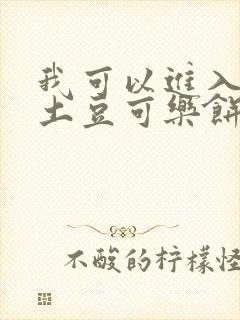 我可以进入
土豆可樂餅
不酸的柠檬怪